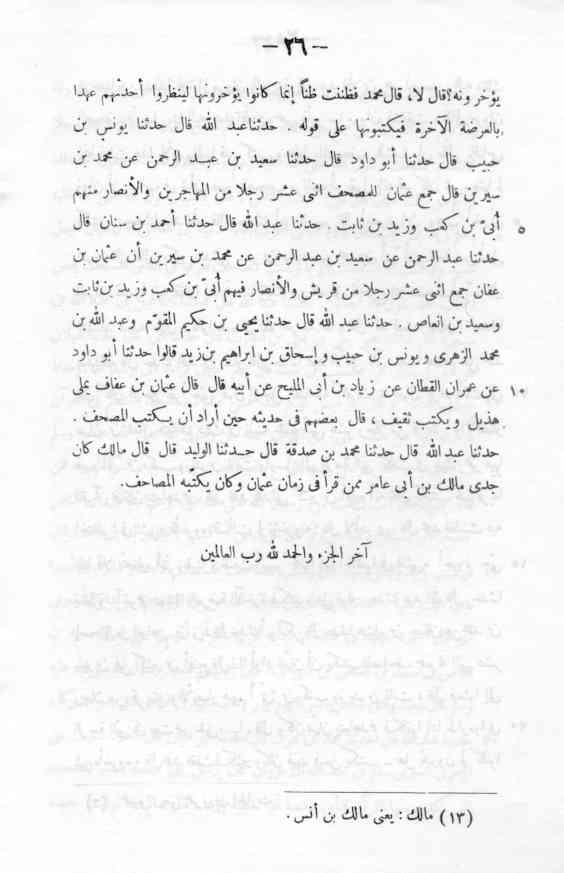 — ٢٦ —
يؤخرونه؟ قال لا، قال محمد فظننت ظنّاً إنما كانوا يؤخرونها لينظروا أحدثهم عهدا
بالعرضة الآخرة فيكتبونها على قوله . حدثنا عبد الله قال حدثنا يونس بن
حبيب قال حدثنا أبو داود قال حدثنا سعيد بن عبد الرحمن عن محمد بن
سيرين قال جمع عثمان للمصحف اثنى عشر رجلا من المهاجرين والأنصار منهم
٥ أُبىّ بن كعب وزيد بن ثابت . حدثنا عبد الله قال حدثنا أحمد بن سنان قال
حدثنا عبد الرحمن عن سعيد بن عبد الرحمن عن محمد بن سيرين أن عثمان بن
عفان جمع اثنى عشر رجلا من قريش والأنصار فيهم أُبىّ بن كعب وزيد بن ثابت
وسعيد بن العاص . حدثنا عبد الله قال حدثنا يحيى بن حكيم المقوّم وعبد الله بن
محمد الزهرى ويونس بن حبيب وإسحاق بن ابراهيم بن زيد قالوا حدثنا أبو داود
١٠ عن عمران القطان عن زياد بن أبى المليح عن أبيه قال قال عثمان بن عفاف يملى
هذيل ويكتب ثقيف ، قال بعضهم فى حديثه حين أراد أن يكتب المصحف .
حدثنا عبد الله قال حدثنا محمد بن صدقة قال حدثنا الوليد قال قال مالك كان
جدى مالك بن أبي عامر ممن قرأ فى زمان عثمان وكان يكتّبه المصاحف.
آخر الجزء والحمد لله رب العالمين
(١٣) مالك : يعنى مالك بن أنس .